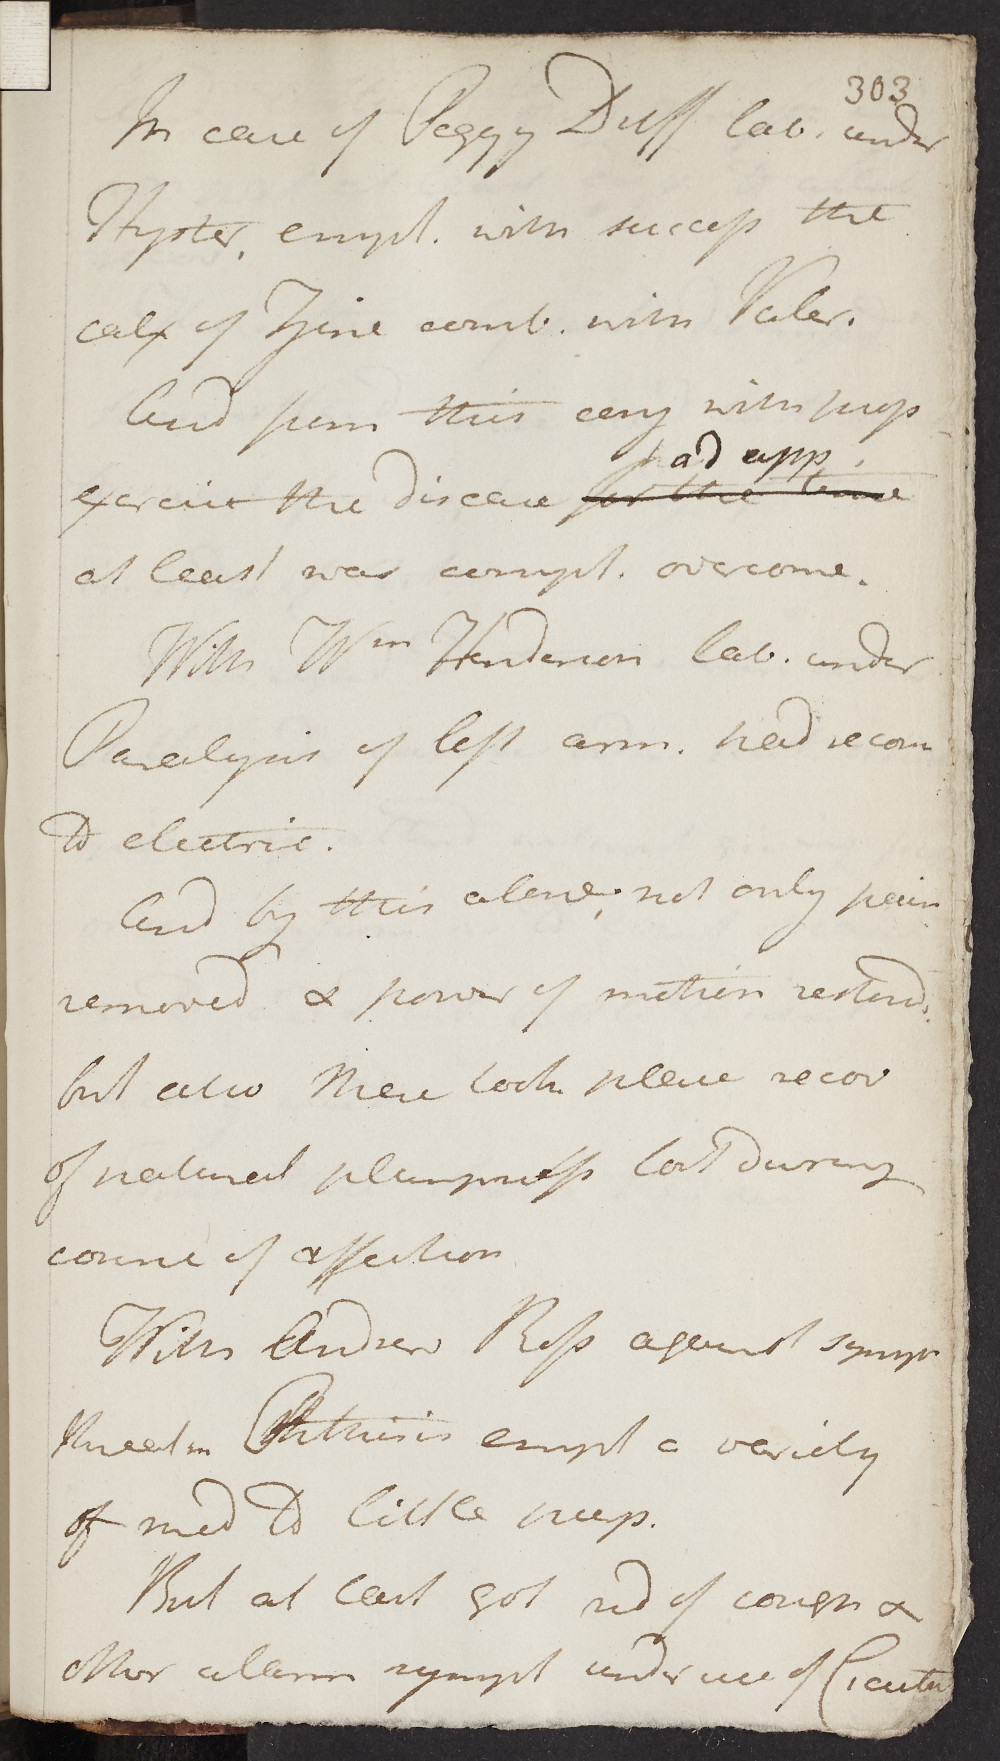 303
In case of Peggy Duff lab. under
Hyster. empl. with success the
calx of Zinc comb. with Valer.
And from this cany with prop
exercise the disease for the time
had app.
at least was compl. overcome.
With Wm Henderson lab. under
Paralysis of left arm. had recour
to electric.
And by this alone, not only pain
removed & power of motion restord.
but also there took place recov
of natural plumpness lost during
course of affection
With Andrew Ross against sympt
threatn Phthisis empl a variety
of med to little purp.
But at last got rid of cough &
other alarm sympt under use of Cicuta